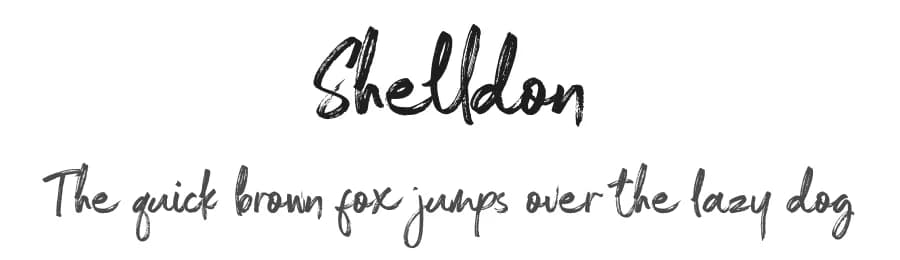 Shelldon
The quick brown fox jumps over the lazy dog